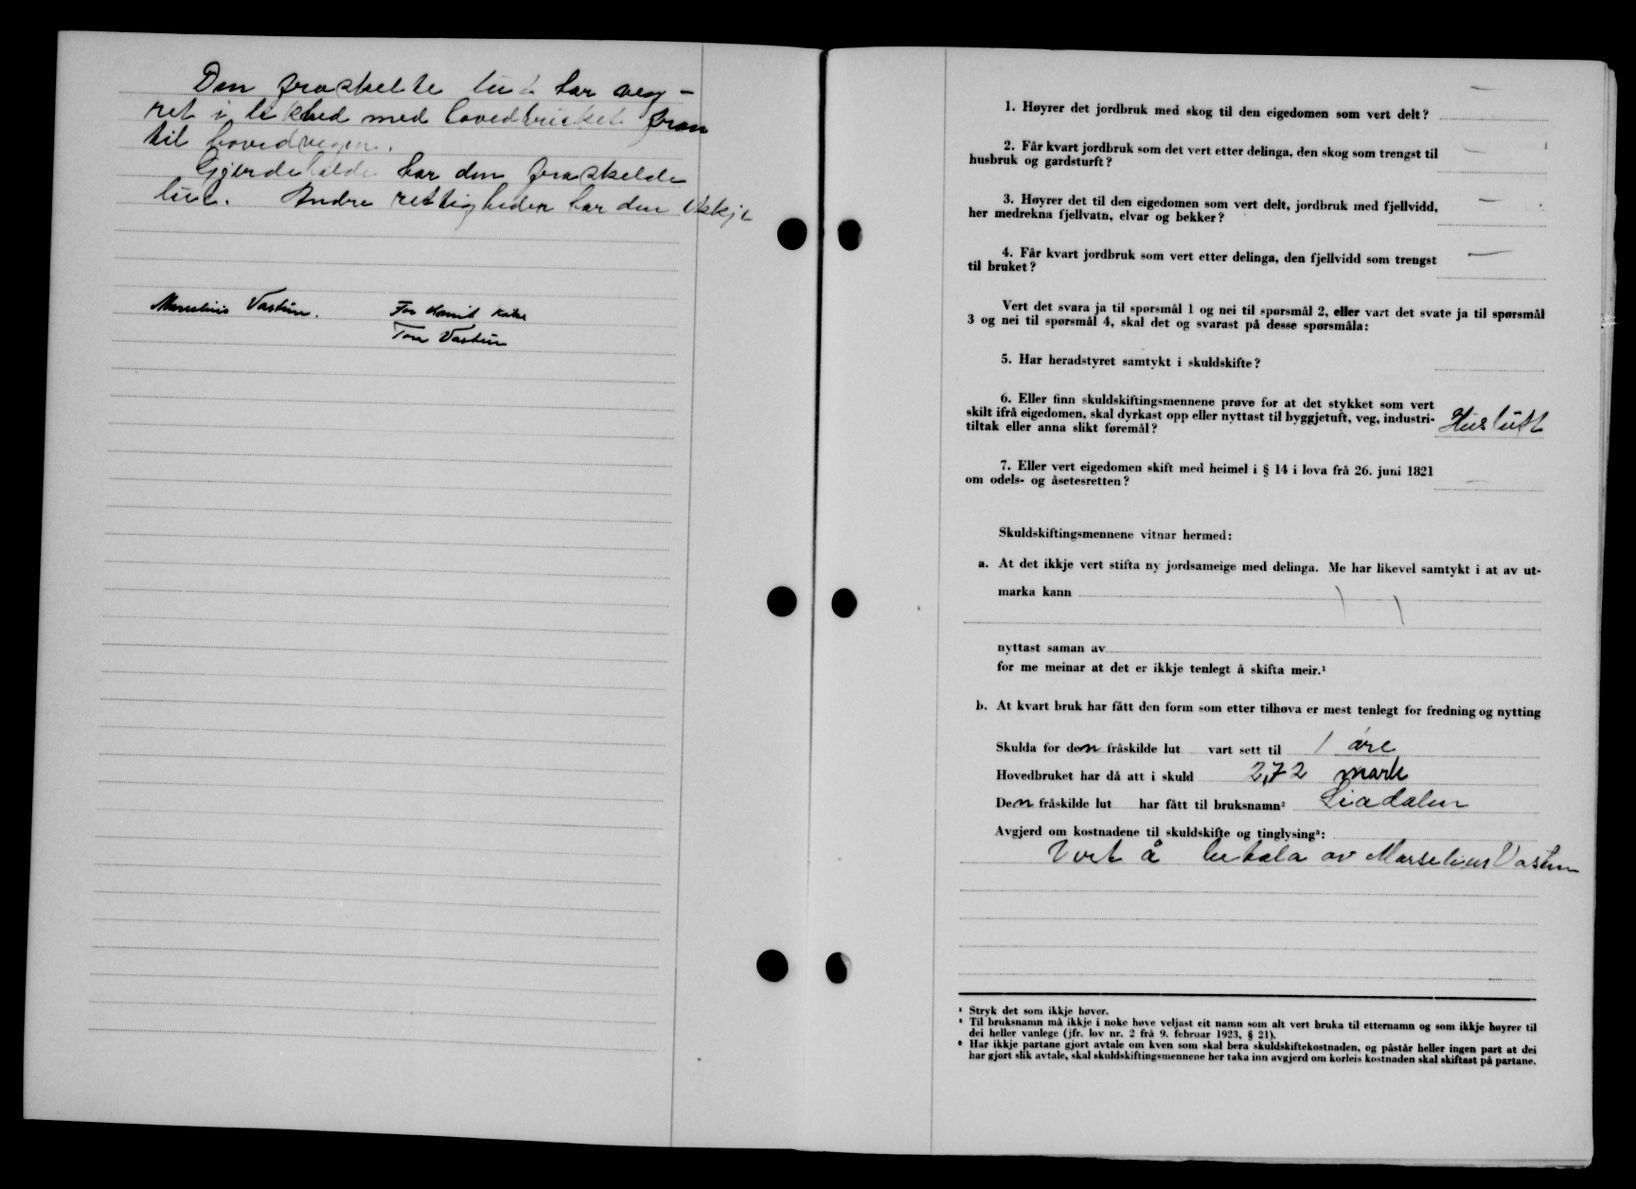 Den fraskelte lut har veg-
ret i likhed med hovedbruket fram
til hovedvegen.
Gjerdehalde har den fraskelde
lut. Andre rettigheder har den ikkje
Marselius Vastun. For
Tore Vastun
1. Høyrer det jordbruk med skog til den eigedomen som vert delt? —
2. Får kvart jordbruk som det vert etter delinga, den skog som trengst til
husbruk og gardsturft? —
3. Høyrer det til den eigedomen som vert delt, jordbruk med fjellvidd,
her medrekna fjellvatn, elvar og bekker? —
4. Får kvart jordbruk som vert etter delinga, den fjellvidd som trengst
til bruket? —
Vert det svara ja til spørsmål 1 og nei til spørsmål 2, eller vart det svate ja til spørsmål
3 og nei til spørsmål 4, skal det og svarast på desse spørsmåla:
5. Har heradstyret samtykt i skuldskifte?
6. Eller finn skuldskiftingsmennene prøve for at det stykket som vert
skilt ifrå eigedomen, skal dyrkast opp eller nyttast til byggjetuft, veg, industri-
tiltak eller anna slikt føremål? Hustuft
7. Eller vert eigedomen skift med heimel i § 14 i lova frå 26. juni 1821
om odels- og åsetesretten? —
Skuldskiftingsmennene vitnar hermed:
a. At det ikkje vert stifta ny jordsameige med delinga. Me har likevel samtykt i at av ut-
marka kann
nyttast saman av
for me meinar at det er ikkje tenlegt å skifta meir.¹
b. At kvart bruk har fått den form som etter tilhøva er mest tenlegt for fredning og nytting
Skulda for den fråskilde lut vart sett til 1 øre
Hovedbruket har då att i skuld 2,72 mark
Den fråskilde lut har fått til bruksnamn² Liadalen
Avgjerd om kostnadene til skuldskifte og tinglysing³:
Vert å betala av Marselius Vastun
¹ Stryk det som ikkje høver.
² Til bruksnamn må ikkje i noke høve veljast eit namn som alt vert bruka til etternamn og som ikkje høyrer til
dei heller vanlege (jfr. lov nr. 2 frå 9. februar 1923, § 21).
³ Har ikkje partane gjort avtale om kven som skal bera skuldskiftekostnaden, og påstår heller ingen part at dei
har gjort slik avtale, skal skuldskiftingsmennene her taka inn avgjerd om korleis kostnaden skal skiftast på partane.